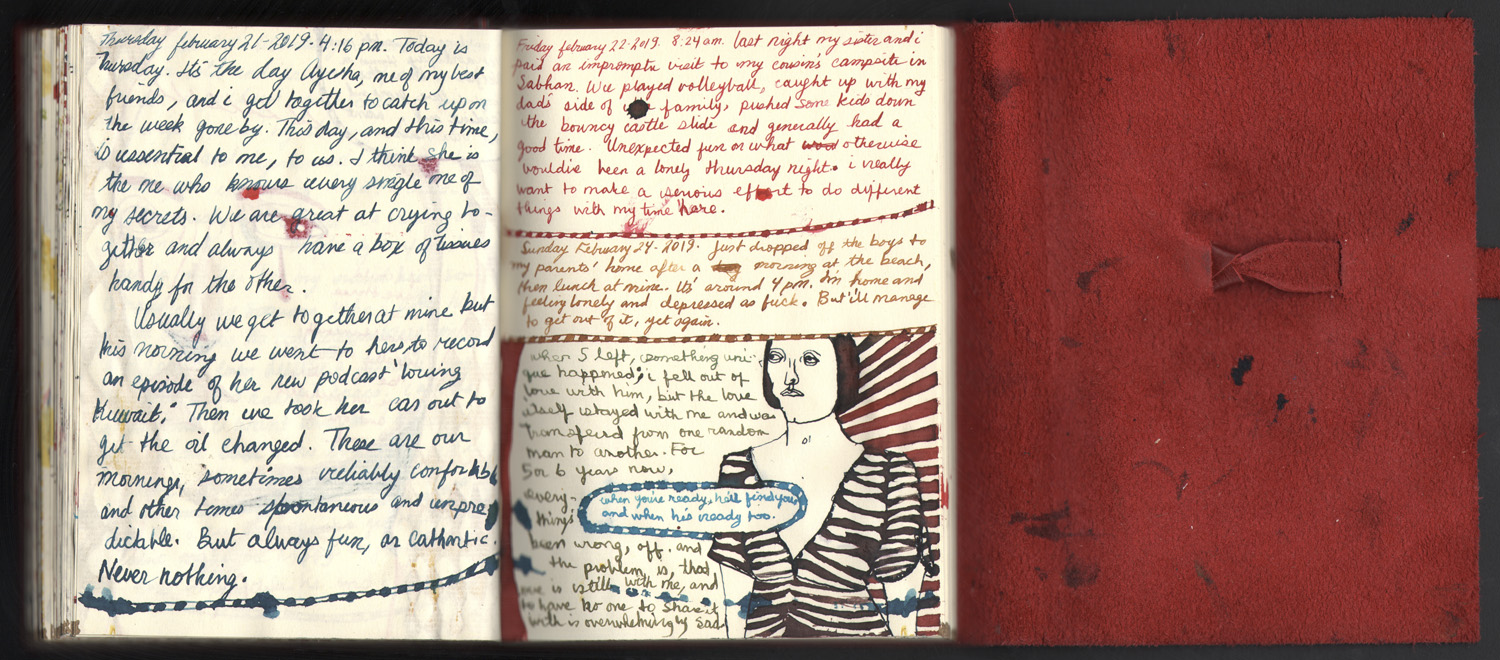 Thursday february 21-2019. 4:16 pm. Today is
Thursday. It's the day Ayesha, one of my best
friends, and i get together to catch up on
the week gone by. This day, and this time,
is essential to me, to us. I think she is
the one who knows every single one of
my secrets. We are great at crying to-
gether and always have a box of tissues
handy for the other.
Usually we get together at mine but
this morning we went to hers, to record
an episode of her new podcast 'loving
Kuwait.' Then we took her car out to
get the oil changed. These are our
mornings, sometimes reliably comfortable
and other times spontaneous and unpre
dictable. But always fun, or cathartic.
Never nothing.
Friday february 22-2019. 8:24 am. last night my sister and i
paid an impromptu visit to my cousin's campsite in
Sabhan. We played volleyball, caught up with my
dad's side of the family, pushed some kids down
the bouncy castle slide and generally had a
good time. Unexpected fun or what otherwise
would've been a lonely thursday night. i really
want to make a serious effort to do different
things with my time here.
Sunday February 24-2019. Just dropped off the boys to
my parents' home after a morning at the beach,
then lunch at mine. Its' around 4 pm. I'm home and
feeling lonely and depressed as fuck. But i'll manage
to get out of it, yet again.
when S left, something uni-
que happened; i fell out of
love with him, but the love
itself stayed with me and was
transferd from one random
man to another. For
5 or 6 years now,
every-
thing's
when you're ready, he'll find you
and when he's ready too.
been wrong, off. and
the problem is, that
love is still with me, and
to have no one to share it
with is overwhelmingly sad